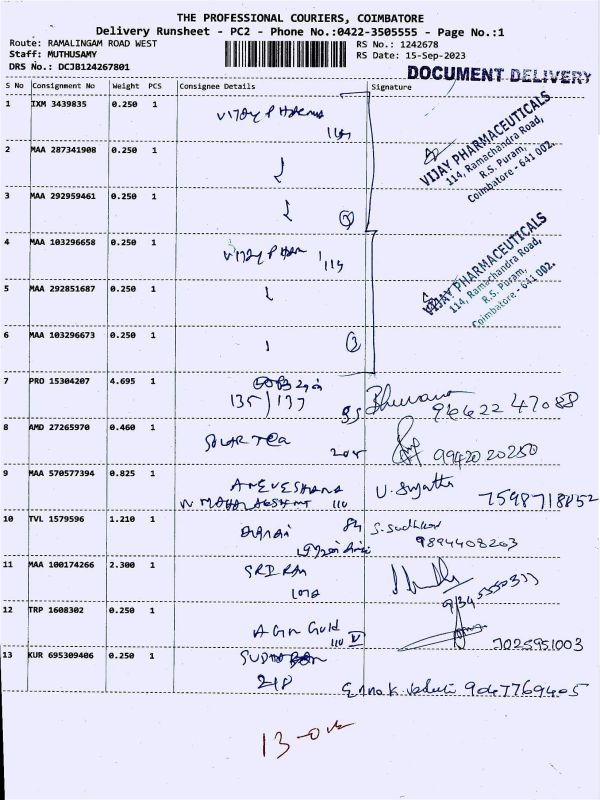 THE PROFESSIONAL COURIERS, COIMBATORE
Delivery Runsheet - PC2 - Phone No.:0422-3505555 - Page No.:1
Route: RAMALINGAM ROAD WEST
RS No.: 1242678
Staff: MUTHUSAMY
RS Date: 15-Sep-2023
DRS No.: DCJB124267801
DOCUMENT DELIVERY
S No Consignment No Weight PCS Consignee Details Signature
1 IXM 3439835 0.250 1
114
VIJAY PHARMACEUTICALS
114, Ramachandra Road,
R.S. Puram,
Coimbatore - 641 002.
2 MAA 287341908 0.250 1
3 MAA 292959461 0.250 1
3
4 MAA 103296658 0.250 1
114
VIJAY PHARMACEUTICALS
114, Ramachandra Road,
R.S. Puram,
Coimbatore - 641 002.
5 MAA 292851687 0.250 1
6 MAA 103296673 0.250 1
3
7 PRO 15304207 4.695 1
135 / 137
Bhuvana
96622 47088
8 AMD 27265970 0.460 1
SOLAR TEA
204
9942020250
9 MAA 570577394 0.825 1
U. Sujatha
7598718852
10 TVL 1579596 1.210 1
84 S. Sudhkar
9894408203
11 MAA 100174266 2.300 1
SRI RAM
12 TRP 1608302 0.250 1
Agn Gold
110
7025951003
13 KUR 695309406 0.250 1
218
9047769405
13-